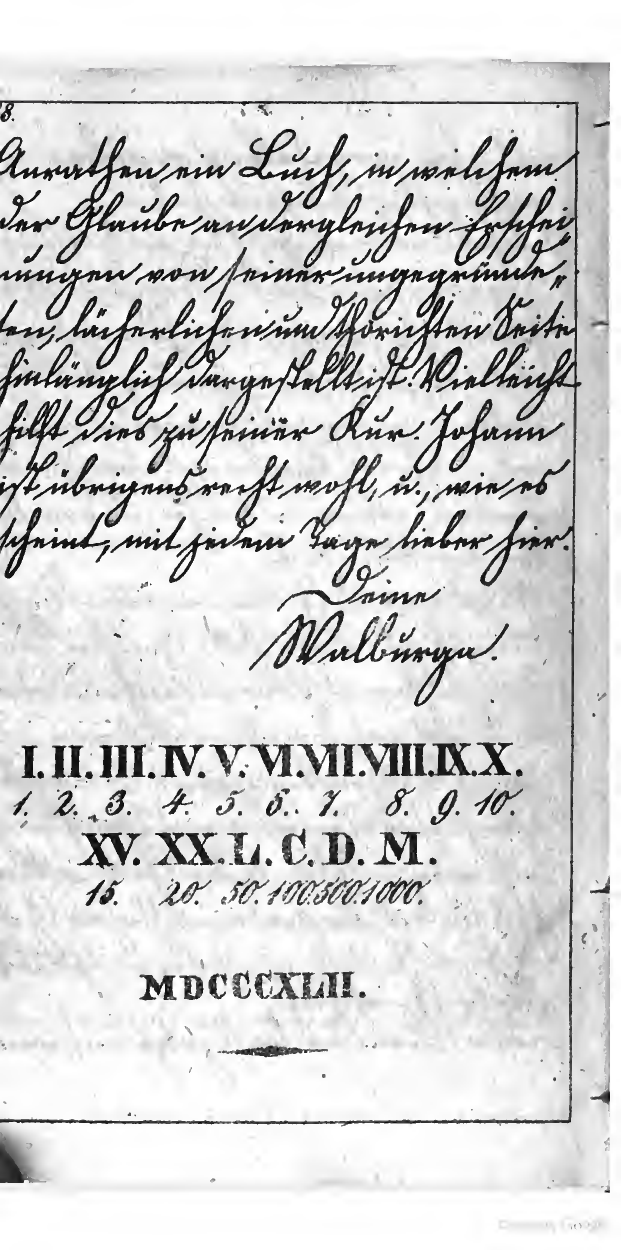 8.
Anrathen ein Buch, in welchem
der Glaube an dergleichen Erschei„
nungen von seiner ungegründe„
ten, lächerlichen und thörichten Seite
hinlänglich dargestellt ist. Vielleicht
hilft dies zu seiner Kur. Johann
ist übrigens recht wohl, u., wie es
scheint, mit jedem Tage lieber hier.
Deine
Walburga.
I. II. III. IV. V. VI. VII. VIII. IX. X.
1. 2. 3. 4. 5. 6. 7. 8. 9. 10.
XV. XX. L. C. D. M.
15. 20. 50. 100. 500. 1000.
MDCCCXLII.